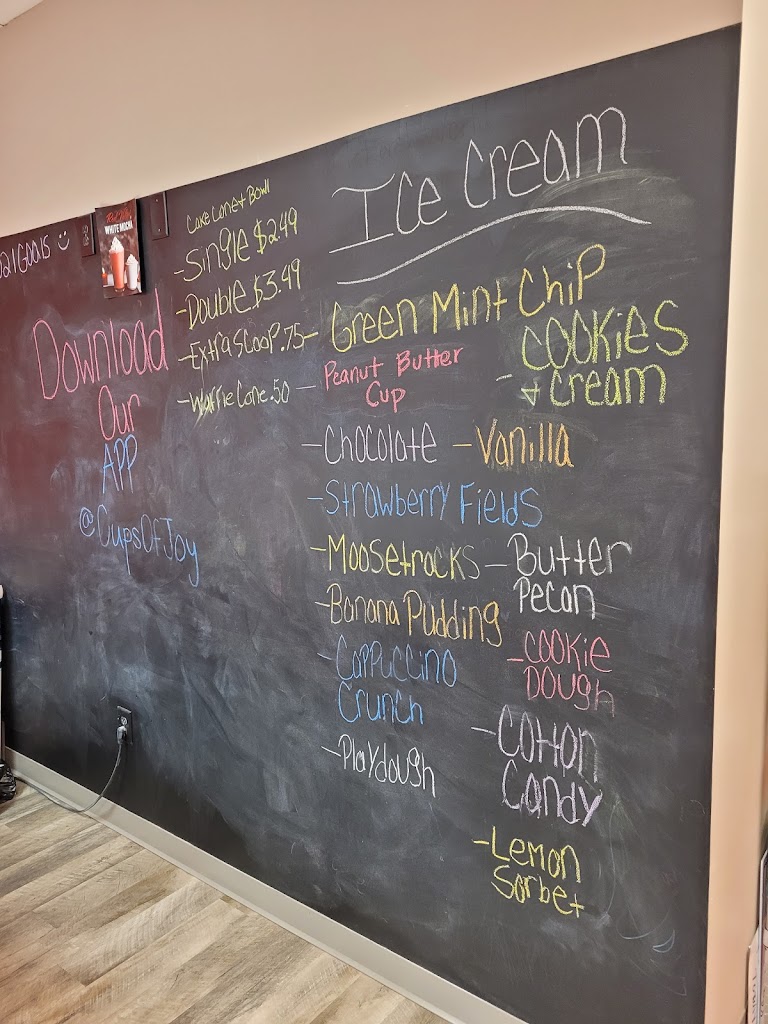 21 Goals
WHITE MOCHA
Download
Our
APP
@CupsOfJoy
Cake Cone + Bowl
-Single $2.49
-Double $3.49
-Extra Scoop .75
-Waffle Cone .50
Ice Cream
-Green Mint Chip
-Peanut Butter
Cup
-Cookies
+ Cream
-Chocolate
-Vanilla
-Strawberry Fields
-Moosetracks
-Butter
Pecan
-Banana Pudding
-Cappuccino
Crunch
-Cookie
Dough
-Playdough
-Cotton
Candy
-Lemon
Sorbet